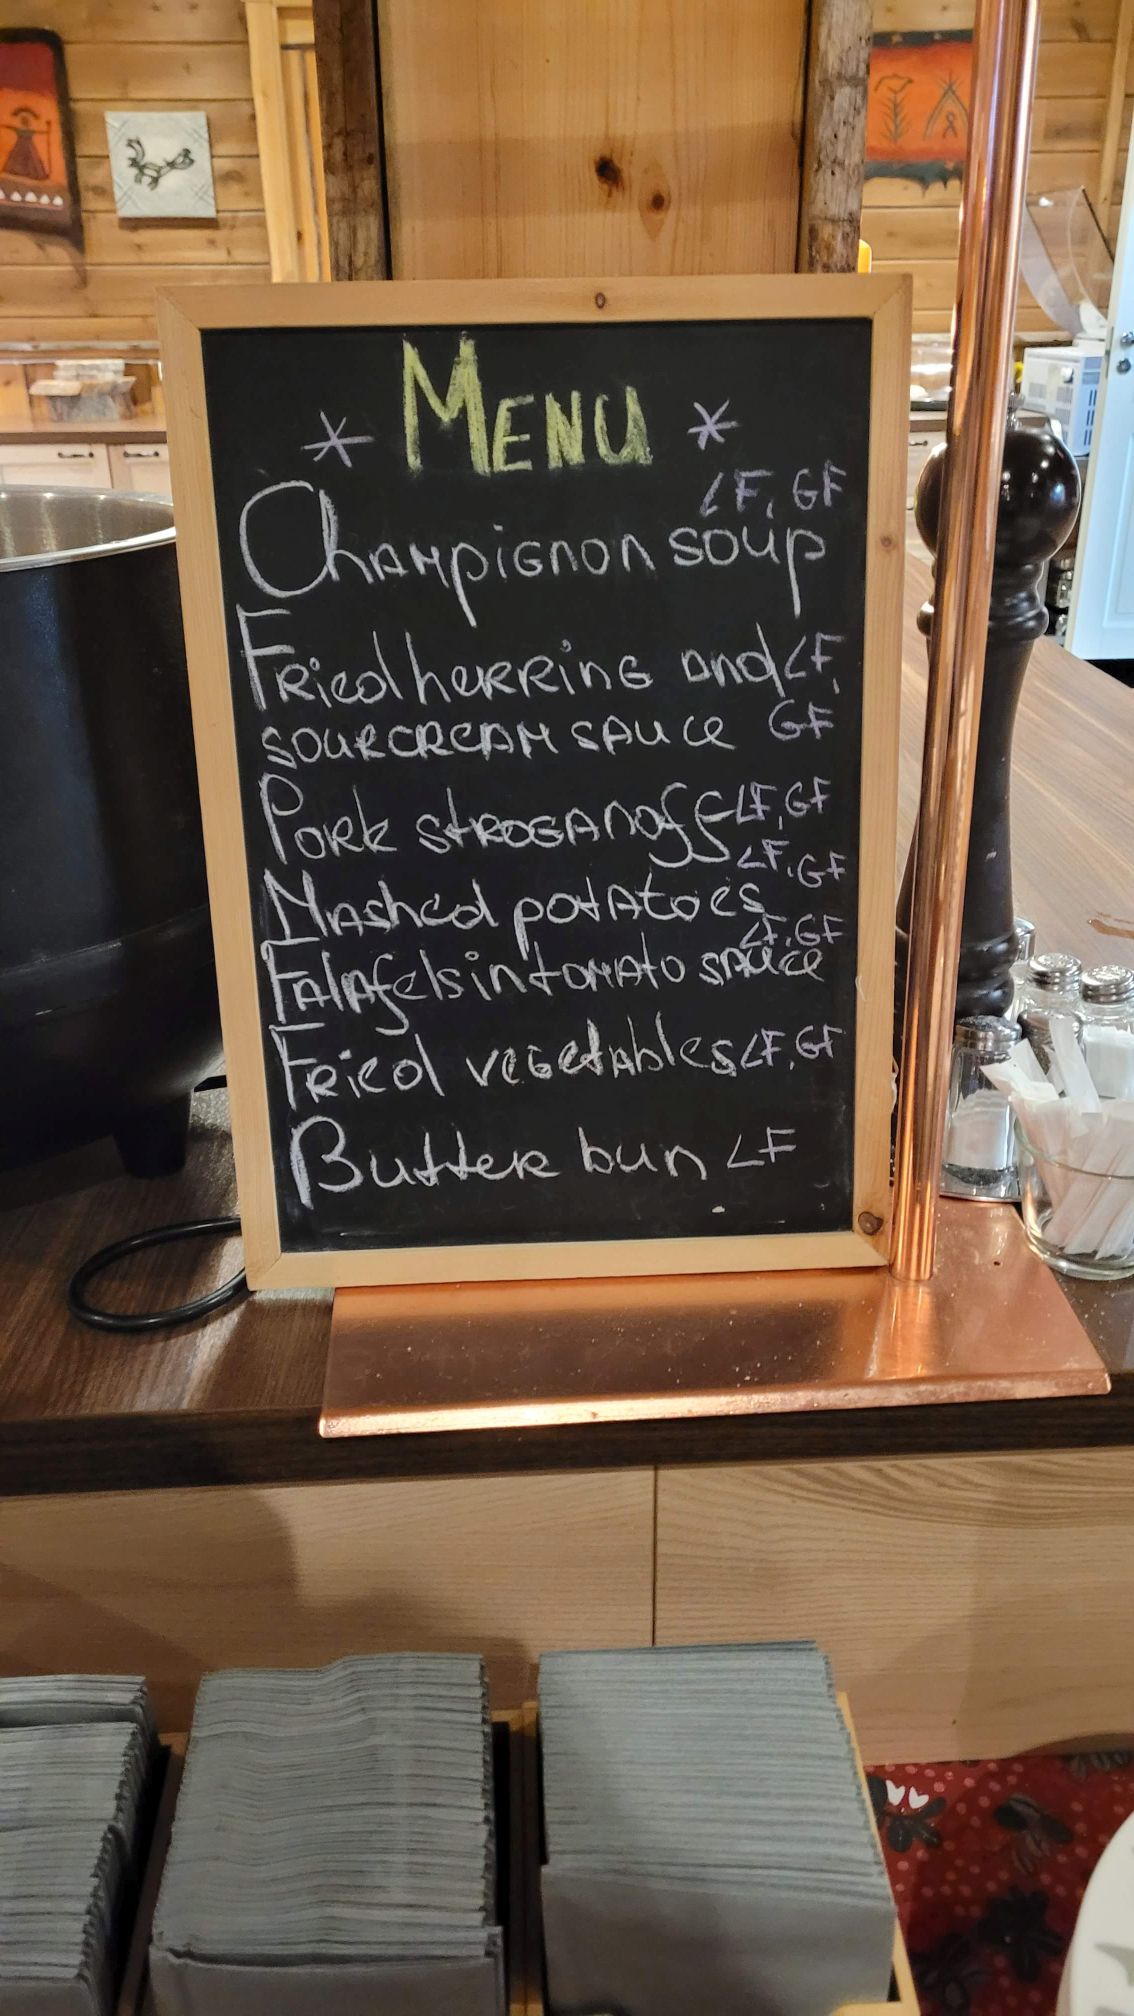 * MENU *
LF, GF
Champignon soup
Fried herring and LF,
sourcream sauce GF
Pork stroganoff LF, GF
LF, GF
Mashed potatoes
LF, GF
Falafels in tomato sauce
Fried vegetables LF, GF
Butter bun LF